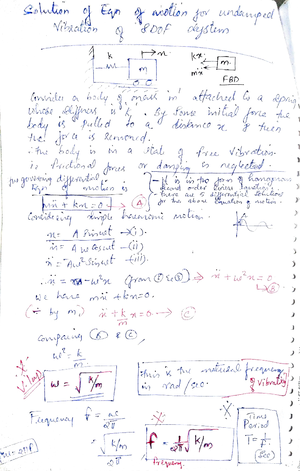 Solution of Eqn of motion for undamped
Vibration of SDOF System
k
m
x
kx
mẍ
m
FBD
Consider a body of mass 'm' attached to a spring
whose stiffness is 'k'. By some initial force the
body is pulled to a distance x & then
the force is removed.
∴ The body is in a state of free vibration
is frictional forces or damping is neglected.
governing differential
Eqn of motion is
mẍ + kx = 0 → A
It is in the form of homogenous
second order linear equation.
there are 5 differential solutions
for the above equation of motion.
Considering simple harmonic motion.
x = A sin ωt → (i).
ẋ = Aω cos ωt - (ii)
ẍ = -Aω² sin ωt - (iii).
∴ ẍ = -ω²x (from i & iii) ⇒ ẍ + ω²x = 0
→ B
We have mẍ + kx = 0.
(÷ by m) ẍ + k/m x = 0. → C
Comparing B & C,
ω² = k/m
V.Imp
ω = √k/m
this is the natural frequency of vibration
in rad/sec.
Frequency f = ω/2π
= √k/m / 2π
f = 1/2π √k/m
Frequency.
Time
Period
T = 1/f
(sec)
ω = 2πf